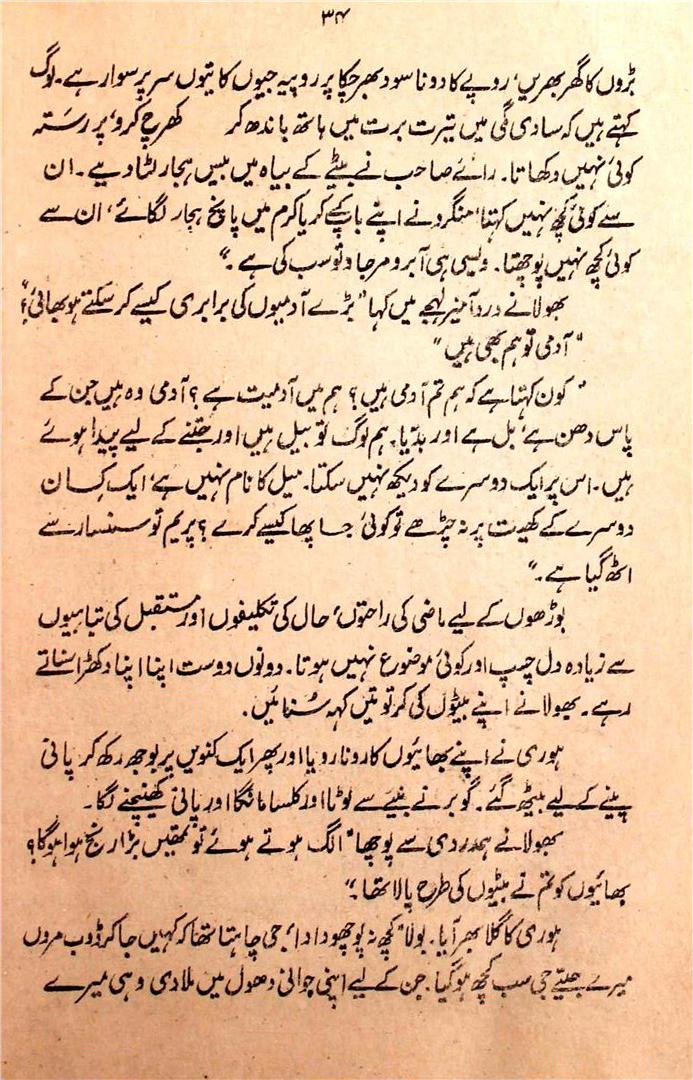 ۳۴
بڑوں کا گھر بھریں، روپے کا دونا سود بھر چکا پر روپیہ جیوں کا تیوں سر پر سوار ہے۔ لوگ
کہتے ہیں کہ سادی گمی میں تیرت برت میں ہاتھ باندھ کر کھرچ کرو، پر رستہ
کوئی نہیں دکھاتا۔ رائے صاحب نے بیٹے کے بیاہ میں بیس ہجار لٹا دیے۔ ان
سے کوئی کچھ نہیں کہتا، منگرو نے اپنے باپ کے کریا کرم میں پانچ ہجار لگائے، ان سے
کوئی کچھ نہیں پوچھتا۔ ویسی ہی آبرو مرجاد تو سب کی ہے۔"
بھولا نے درد آمیز لہجے میں کہا "بڑے آدمیوں کی برابری کیسے کر سکتے ہو بھائی؟"
"آدمی تو ہم بھی ہیں"
"کون کہتا ہے کہ ہم تم آدمی ہیں؟ ہم میں آدمیت ہے؟ آدمی وہ ہیں جن کے
پاس دھن ہے، بل ہے اور بدّیا۔ ہم لوگ تو بیل ہیں اور جتنے کے لیے پیدا ہوئے
ہیں۔ اس پر ایک دوسرے کو دیکھ نہیں سکتا۔ میل کا نام نہیں ہے، ایک کسان
دوسرے کے کھیت پر نہ چڑھے تو کوئی جسا پھا کیسے کرے؟ پریم تو سنسار سے
اٹھ گیا ہے۔"
بوڑھوں کے لیے ماضی کی راحتوں، حال کی تکلیفوں اور مستقبل کی تباہیوں
سے زیادہ دل چسپ اور کوئی موضوع نہیں ہوتا۔ دونوں دوست اپنا اپنا دکھڑا سناتے
رہے۔ بھولا نے اپنے بیٹوں کی کرتوتیں کہہ سُنائیں۔
ہوری نے اپنے بھائیوں کا رونا رویا اور پھر ایک کنویں پر بوجھ رکھ کر پانی
پینے کے لیے بیٹھ گئے۔ گوبر نے بنیے سے لوٹا اور کلسا مانگا اور پانی کھینچنے لگا۔
بھولا نے ہمدردی سے پوچھا "الگ ہوتے ہوئے تو تمھیں بڑا رنج ہوا ہوگا؟
بھائیوں کو تم نے بیٹوں کی طرح پالا تھا۔"
ہوری کا گلا بھر آیا۔ بولا "کچھ نہ پوچھو دادا، جی چاہتا تھا کہ کہیں جا کر ڈوب مروں
میرے جیتے جی سب کچھ ہو گیا۔ جن کے لیے اپنی جوانی دھول میں ملا دی وہی میرے